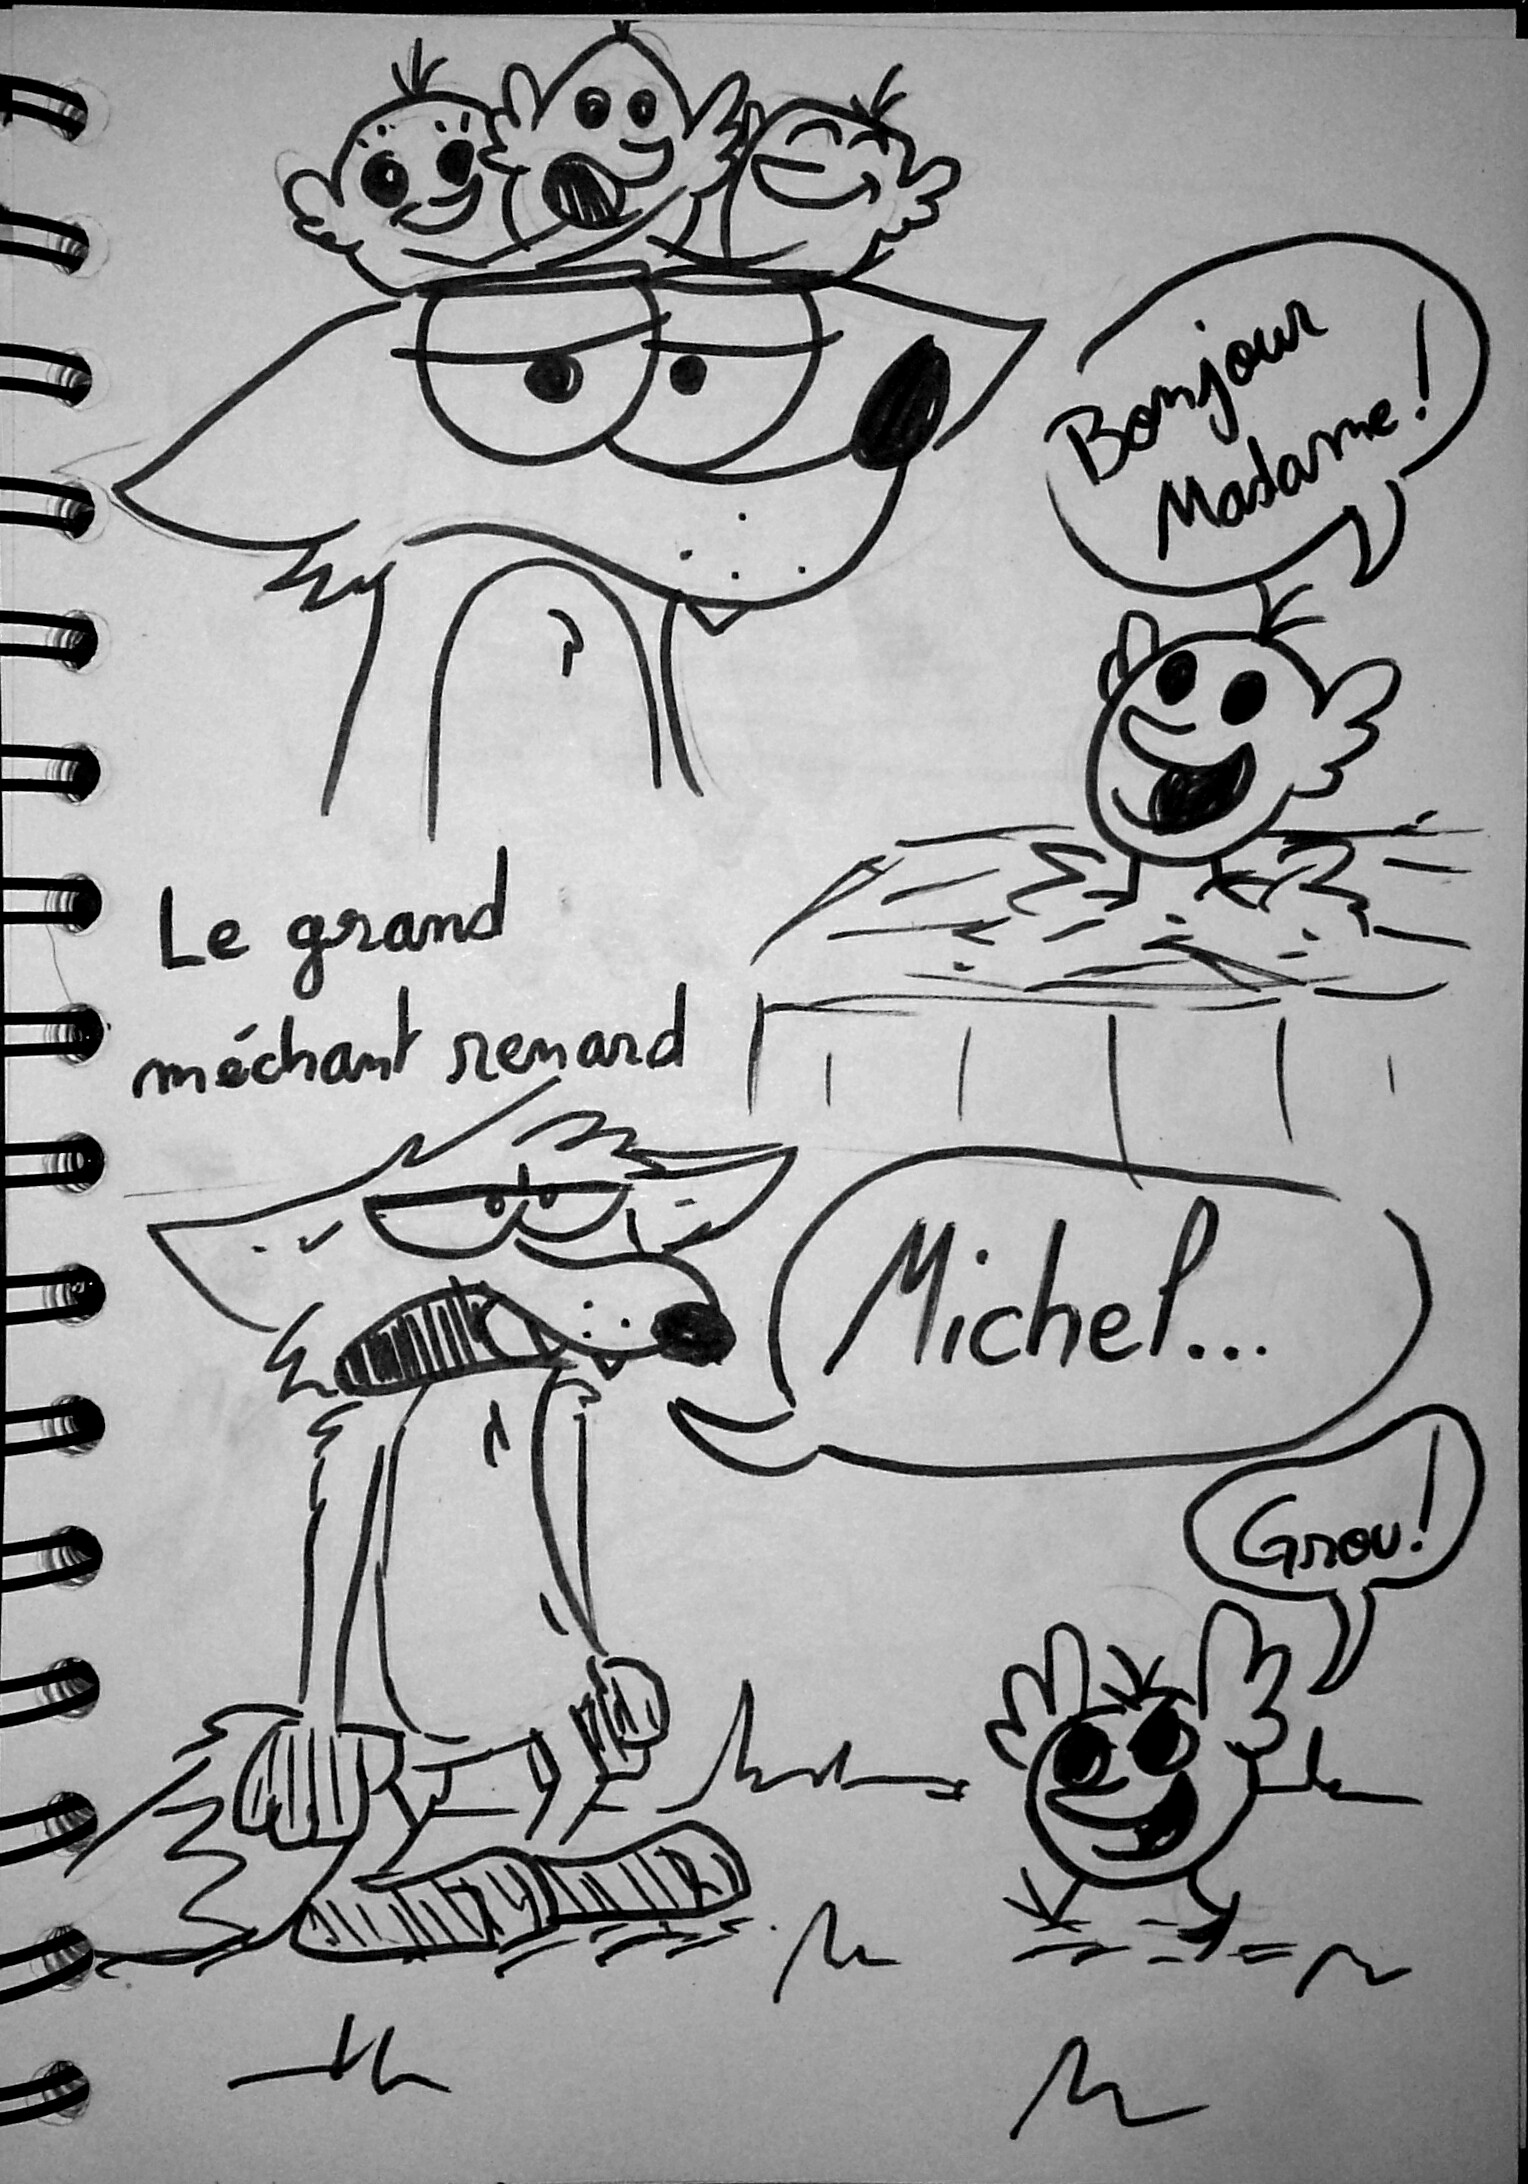 Bonjour
Madame!
Le grand
méchant renard
Michel...
Grou!